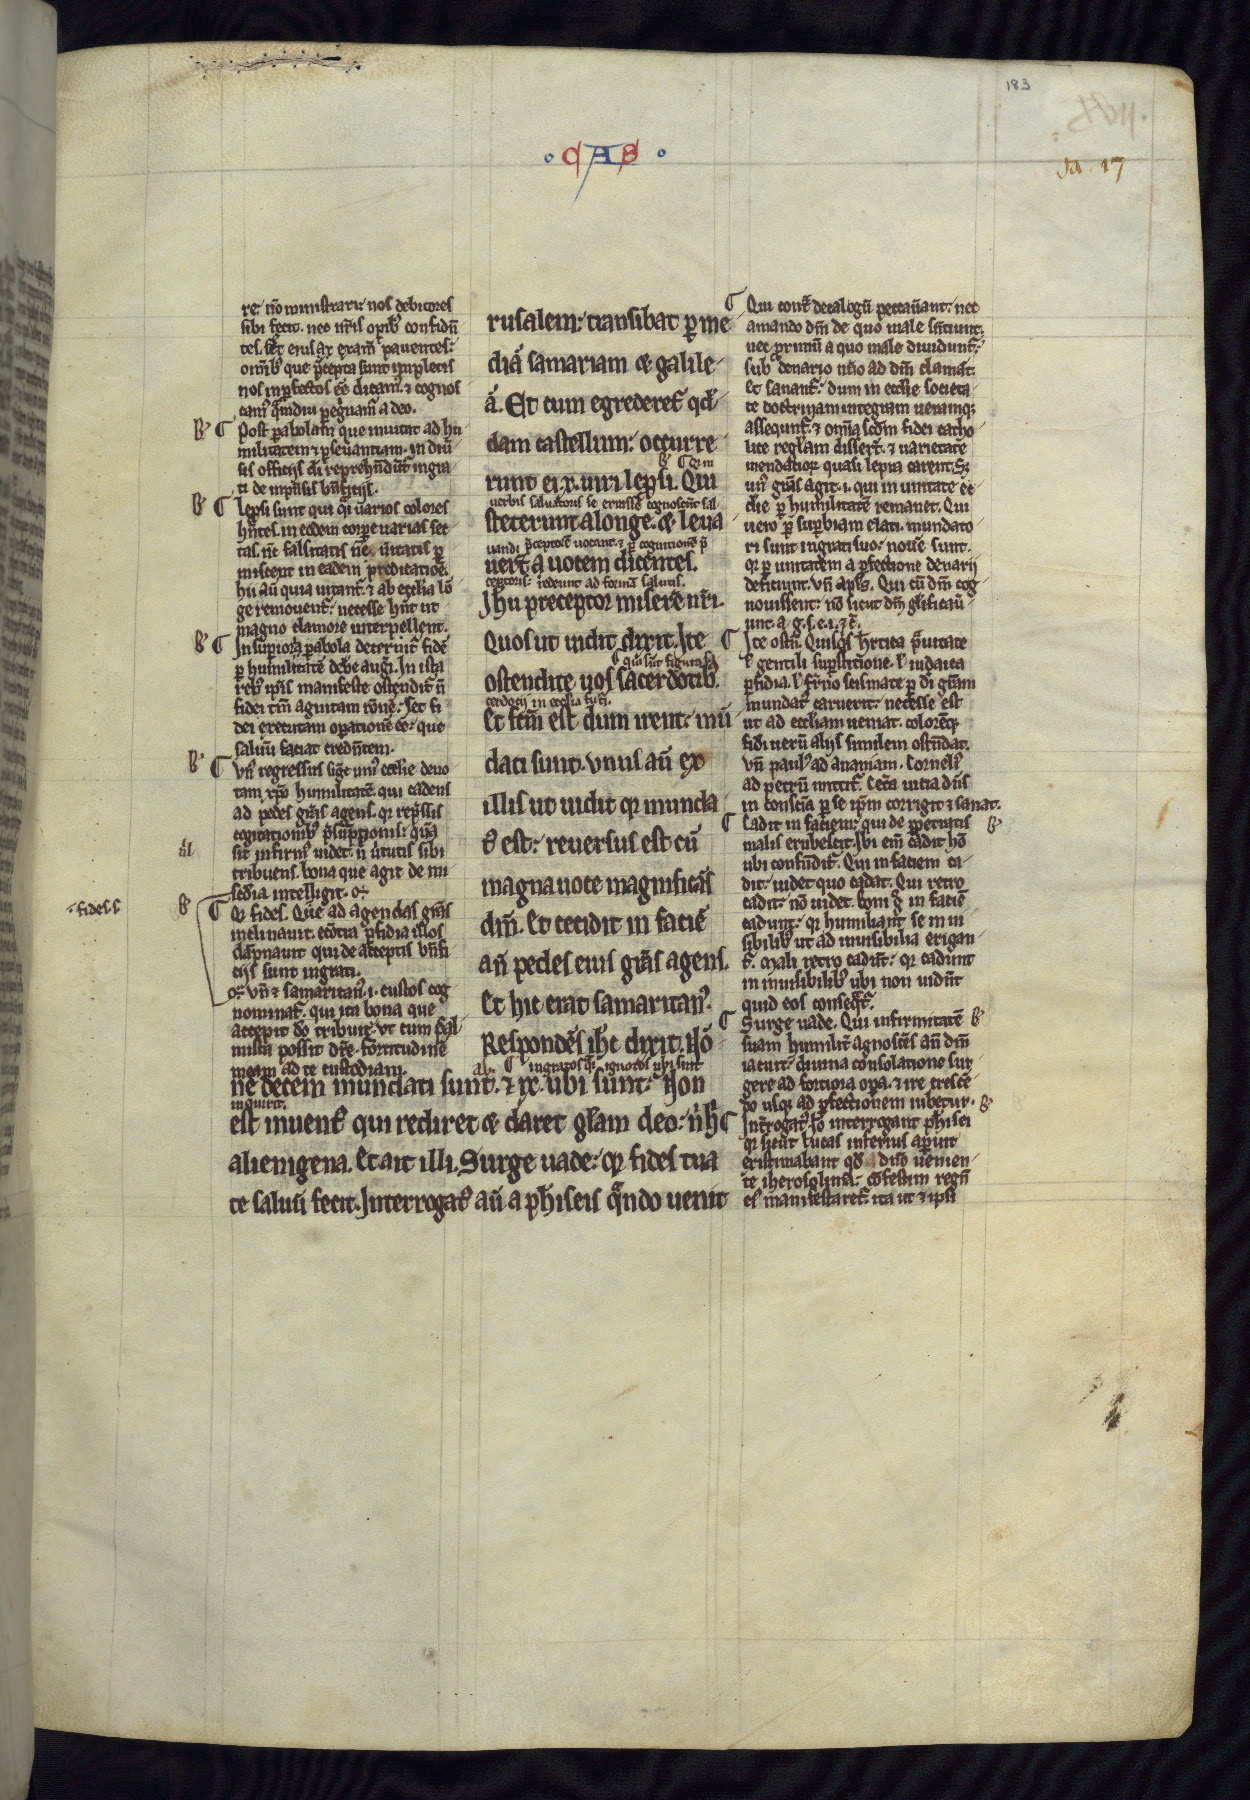 183
· CAS ·
Ja. 17
re. nō ministrari: nos debitores
sibi fecit. nec nr̄is opib; confidn̄
tes. set eius ax exam̄ pauentes:
om̄ib; que p̄cepta sunt impletis
nos inp̄fectos eē dicam̄. ⁊ cognos
cam̄ q̄mdiu pegnam̄ a deo.
Post parabolam que inuitat ad hu
militatem ⁊ pseuantiam. in diu
sis officijs di reprehendūt ingra
ti de impensis bn̄ficijs.
Leprosi sunt qui qi uarios colores
hn̄tes. in eodem corpe uarias sec
tas. nc̄ falsitatis nc̄ ueritatis p
miscent in eadem predicatiōe.
hii au quia uitant. ⁊ ab ecclia lō
ge remouent. necesse hn̄t ut
magno clamore interpellent.
In supiora parabola decreuit fidē
p humilitatē debe augi. In ista
reb; ipsis manifeste ostendit n̄
fidei tm̄ agnitam rōnē. Set fi
dei executam opationē eē. que
saluū faciat credn̄tem.
Vn̄ regressus signat unū ecclie deuo
tam xpō humilitatē. qui cadens
ad pedes grās agens. qr repssis
cogitationib; p̄sūptionis: qua
sit infirm̄ uidet. n̄ uirtutis sibi
tribuens. bona que agit de mi
sedia intelligit.
·fides s
Qr fides. Que ad agendas grās
inclinauit. econtra pfidia illos
dāpnauit qui de acceptis bn̄fi
cijs sunt ingrati.
vn̄ ⁊ samaritan. i. custos cog
nominat. qui ita bona que
accepit do tribuit. ut cum psal
mista possit dre. fortitudinē
meam ad te custodiam.
rusalem: transibat p me
diā samariam & galile
ā. Et cum egrederet qd
dam castellum: occurre
runt ei .x. uiri leprosi. Qui
uerbis saluatoris se errasse cognoscent sal
steterunt a longe. & leua
uandi p̄ceptorē uocant. ⁊ p cognitionē p̄
uerūt uocem dicentes.
ceptoris: redeunt ad formā salutis.
Jhu preceptor miserē nr̄i.
Quos ut uidit dixit. Ite
ostendite uos sacerdotib;
Et fcm̄ est dum irent: mū
dati sunt. Vnus aū ex
illis ut uidit qr munda
t est: reuersus est cū
magna uoce magnificās
dm̄. Et cecidit in faciē
an̄ pedes eius grās agens.
Et hic erat samaritan.
Respondēs ihc dixit. Nō
ne decem mundati sunt. ⁊ ix. ubi sunt: Non
est inuent qui rediret & daret glam deo: n̄ hic
alienigena. Et ait illi. Surge uade: qr fides tua
te saluū fecit. Interrogat aū a phiseis qndo uenit
Qui conta decalogū peccauant. nec
amando dm̄ de quo male sn̄ciunt.
nec primū a quo male diuidunt.
sub denario nūo ad dm̄ clamat.
et sanant. dum in ecclie societa
te doctrinam integram ueramq;
assequnt. ⁊ om̄ia scdm fidei catho
lice reglam dissert. ⁊ uarietate
mendatior quasi lepra carent. Sz
un̄ grās agit. i. qui in unitate ec
clie p humilitatē remanet. Qui
uero p supbiam elati. mundato
ri sunt ingrati suo: nouē sunt.
qr p unitatem a pfectione denarij
deficiunt. vn̄ apls. Qui cū dm̄ cog
nouissent. nō sicut dm̄ glificau
Ite osten. Quisqs hr̄tica p̄uitate
l gentili supstitione. l iudaica
pfidia. l frno scismate p di gram
mundat caruerit. necesse est
ut ad eccliam ueniat. colorēq;
fidi uerū alijs similem ostn̄dat.
vn̄ paul ad ananiam. Corneli
ad petrū mittit. cetera uicia dn̄s
in conscia p se ipm corrigit ⁊ sanat.
Cadit in faciem: qui de ppetratis
malis erubescit. Ibi em̄ cadit hō
ubi confundit. Qui in faciem ca
dit: uidet quo cadat. Qui retro
cadit: nō uidet. boni g in faciē
cadunt: qr humiliant se in ui
sibilib; ut ad inuisibilia erigan
t. Mali retro cadūt: qr cadunt
in inuisibilib; ubi non uidn̄t
quid eos consequat.
Surge uade. Qui infirmitatē
suam humilit agnoscēs an̄ dm̄
iacuit: diuina consolatione sur
gere ad fortiora opa. ⁊ ire cresce
do usq; ad pfectionem iubetur.
Intrrogat. Io interrogant phisei
qr sicut lucas inferius apuit
existimabant qd dnō uenien
te iherosolimā: confestim regn̄
ei manifestaret. ita ut ⁊ ipsi